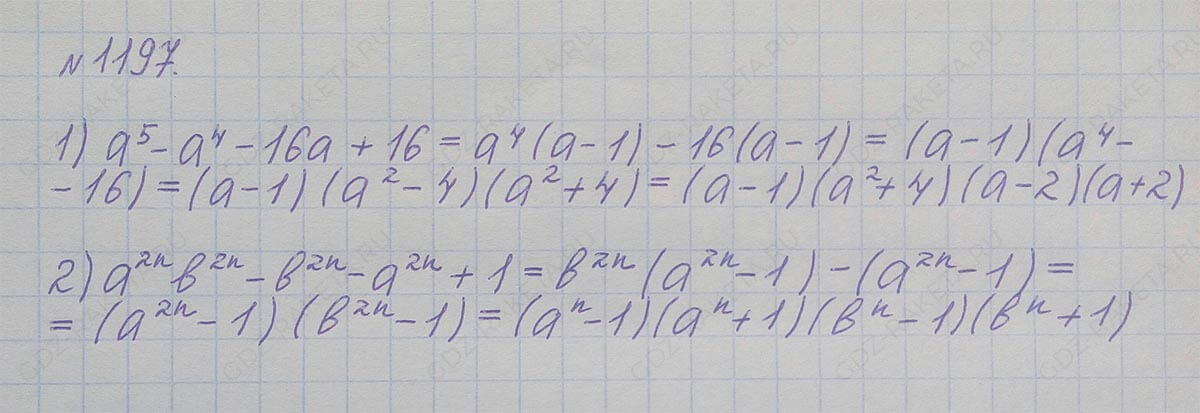 №1197.
1) a⁵ - a⁴ - 16a + 16 = a⁴(a - 1) - 16(a - 1) = (a - 1)(a⁴ -
- 16) = (a - 1)(a² - 4)(a² + 4) = (a - 1)(a² + 4)(a - 2)(a + 2)
2) a²ⁿb²ⁿ - b²ⁿ - a²ⁿ + 1 = b²ⁿ(a²ⁿ - 1) - (a²ⁿ - 1) =
= (a²ⁿ - 1)(b²ⁿ - 1) = (aⁿ - 1)(aⁿ + 1)(bⁿ - 1)(bⁿ + 1)
GDZ-RAKETA.RU